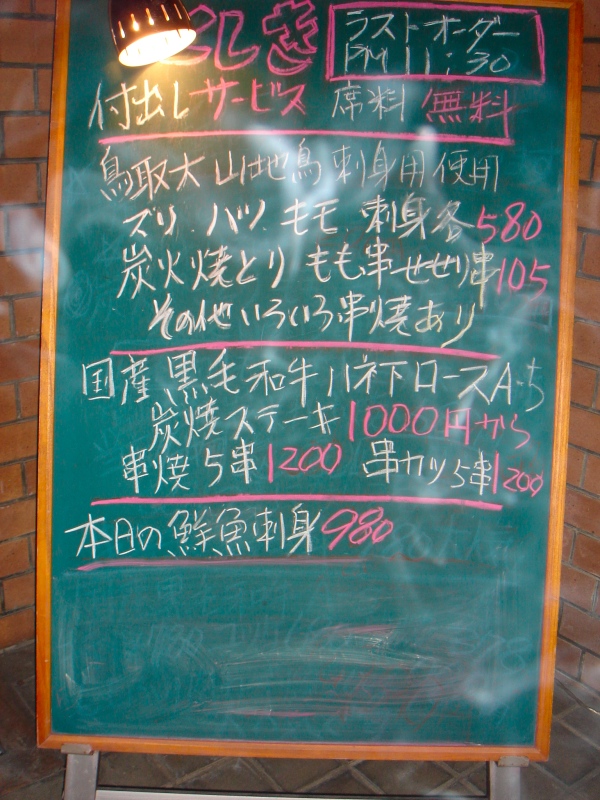 としき
ラストオーダー
PM 11:30
付出しサービス 席料 無料
鳥取大山地鳥刺身用使用
ズリ.ハツ.モモ.刺身各580
炭火焼とり もも串 せせり串105
その他いろいろ串焼あり
国産黒毛和牛ハネ下ロースA-5
炭焼ステーキ1000円から
串焼5串1200 串カツ5串1200
本日の鮮魚刺身980